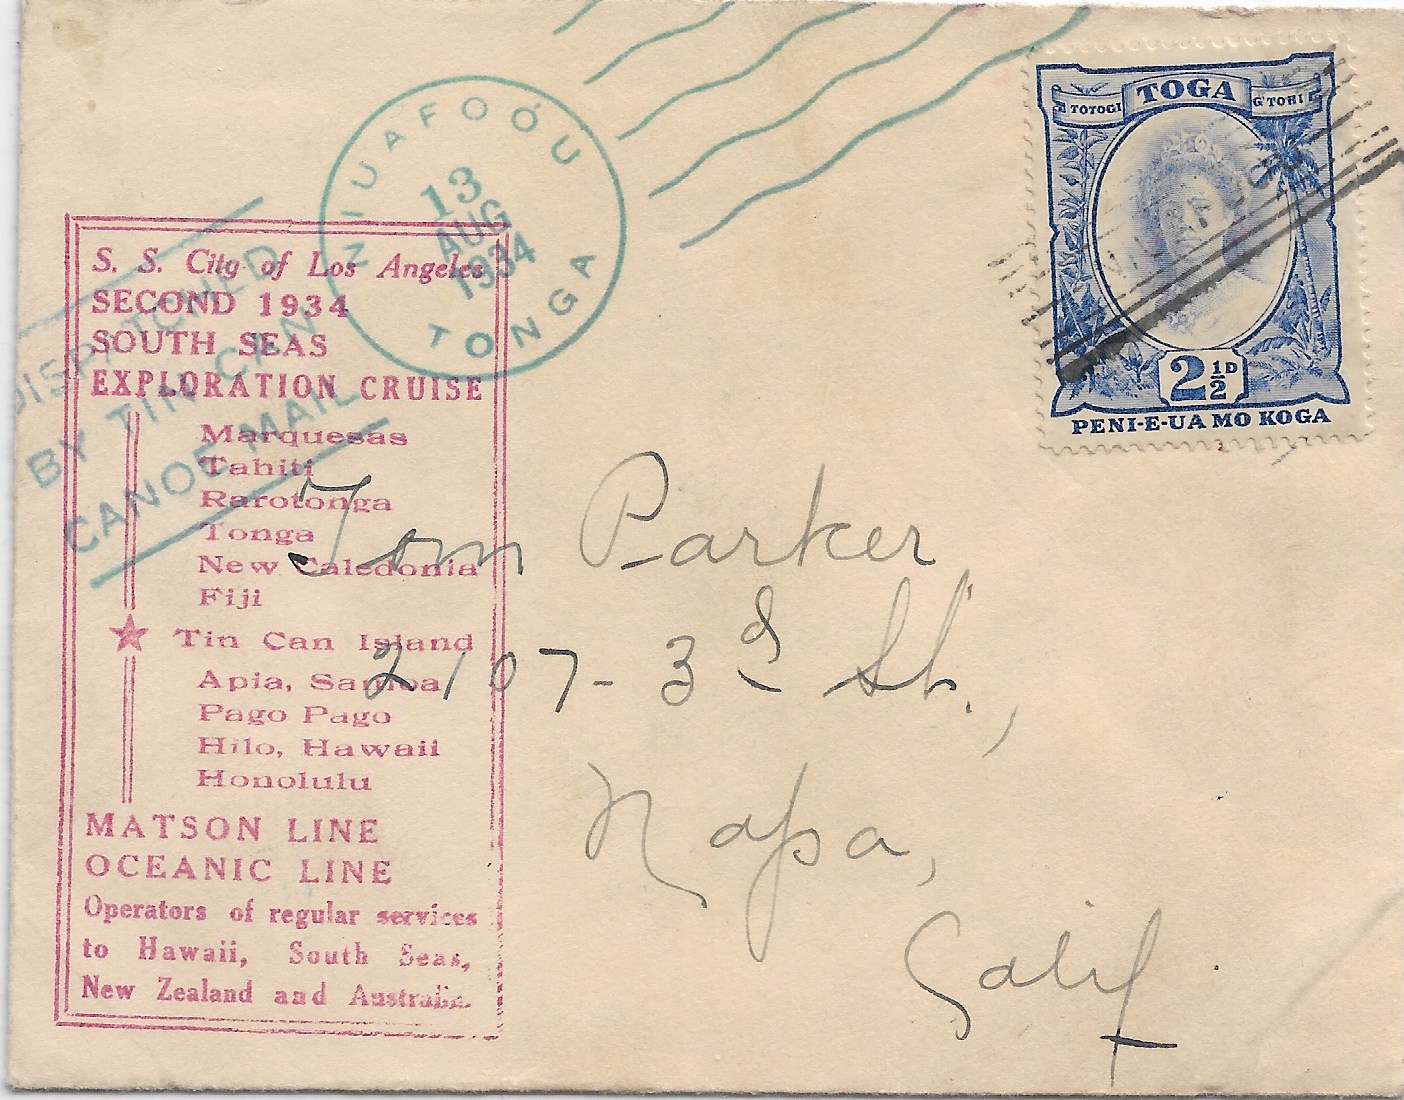 NIUAFOÓU
13
AUG
1934
TONGA
TOTOGI
TOGA
2½D
PENI-E-UA MO KOGA
DISPATCHED
BY TIN CAN
CANOE MAIL
S. S. City of Los Angeles
SECOND 1934
SOUTH SEAS
EXPLORATION CRUISE
Marquesas
Tahiti
Rarotonga
Tonga
New Caledonia
Fiji
Tin Can Island
Apia, Samoa
Pago Pago
Hilo, Hawaii
Honolulu
MATSON LINE
OCEANIC LINE
Operators of regular services
to Hawaii, South Seas,
New Zealand and Australia.
Tom Parker
2107-3d St.,
Napa,
Calif.